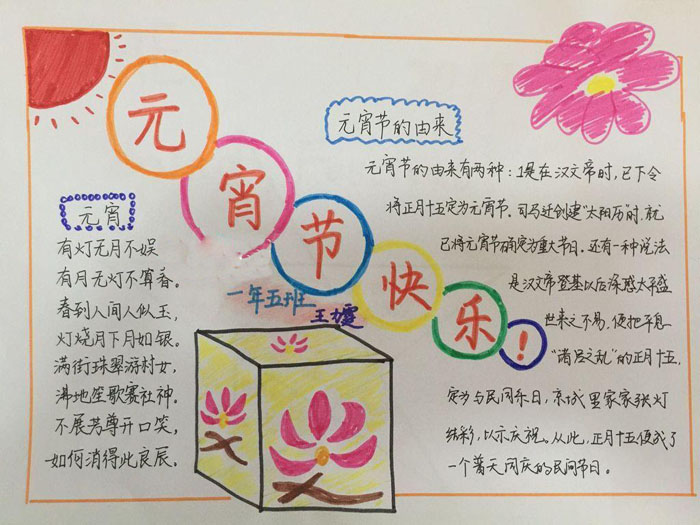 元宵节快乐!
一年五班
元宵
有灯无月不娱
有月无灯不算香。
春到人间人似玉,
灯烧月下月如银。
满街珠翠游村女,
沸地笙歌赛社神。
不展芳尊开口笑,
如何消得此良辰。
元宵节的由来
元宵节的由来有两种:1是在汉文帝时,已下令
将正月十五定为元宵节。司马迁创建"太阳历"时,就
已将元宵节确定为重大节日。还有一种说法
是汉文帝登基以后深感太平盛
世来之不易,便把平息
"诸吕之乱"的正月十五,
定为与民同乐日,京城里家家张灯
结彩,以示庆祝。从此,正月十五便成了
一个普天同庆的民间节日。